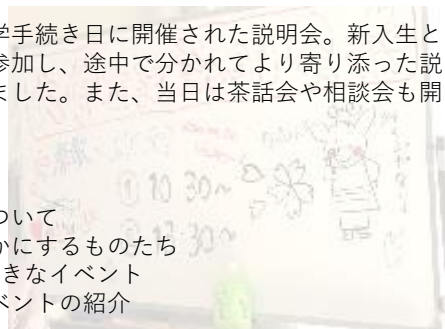 学手続き日に開催された説明会。新入生と
参加し、途中で分かれてより寄り添った説
ました。また、当日は茶話会や相談会も開
① 10:30~
ついて
かにするものたち
きなイベント
ベントの紹介